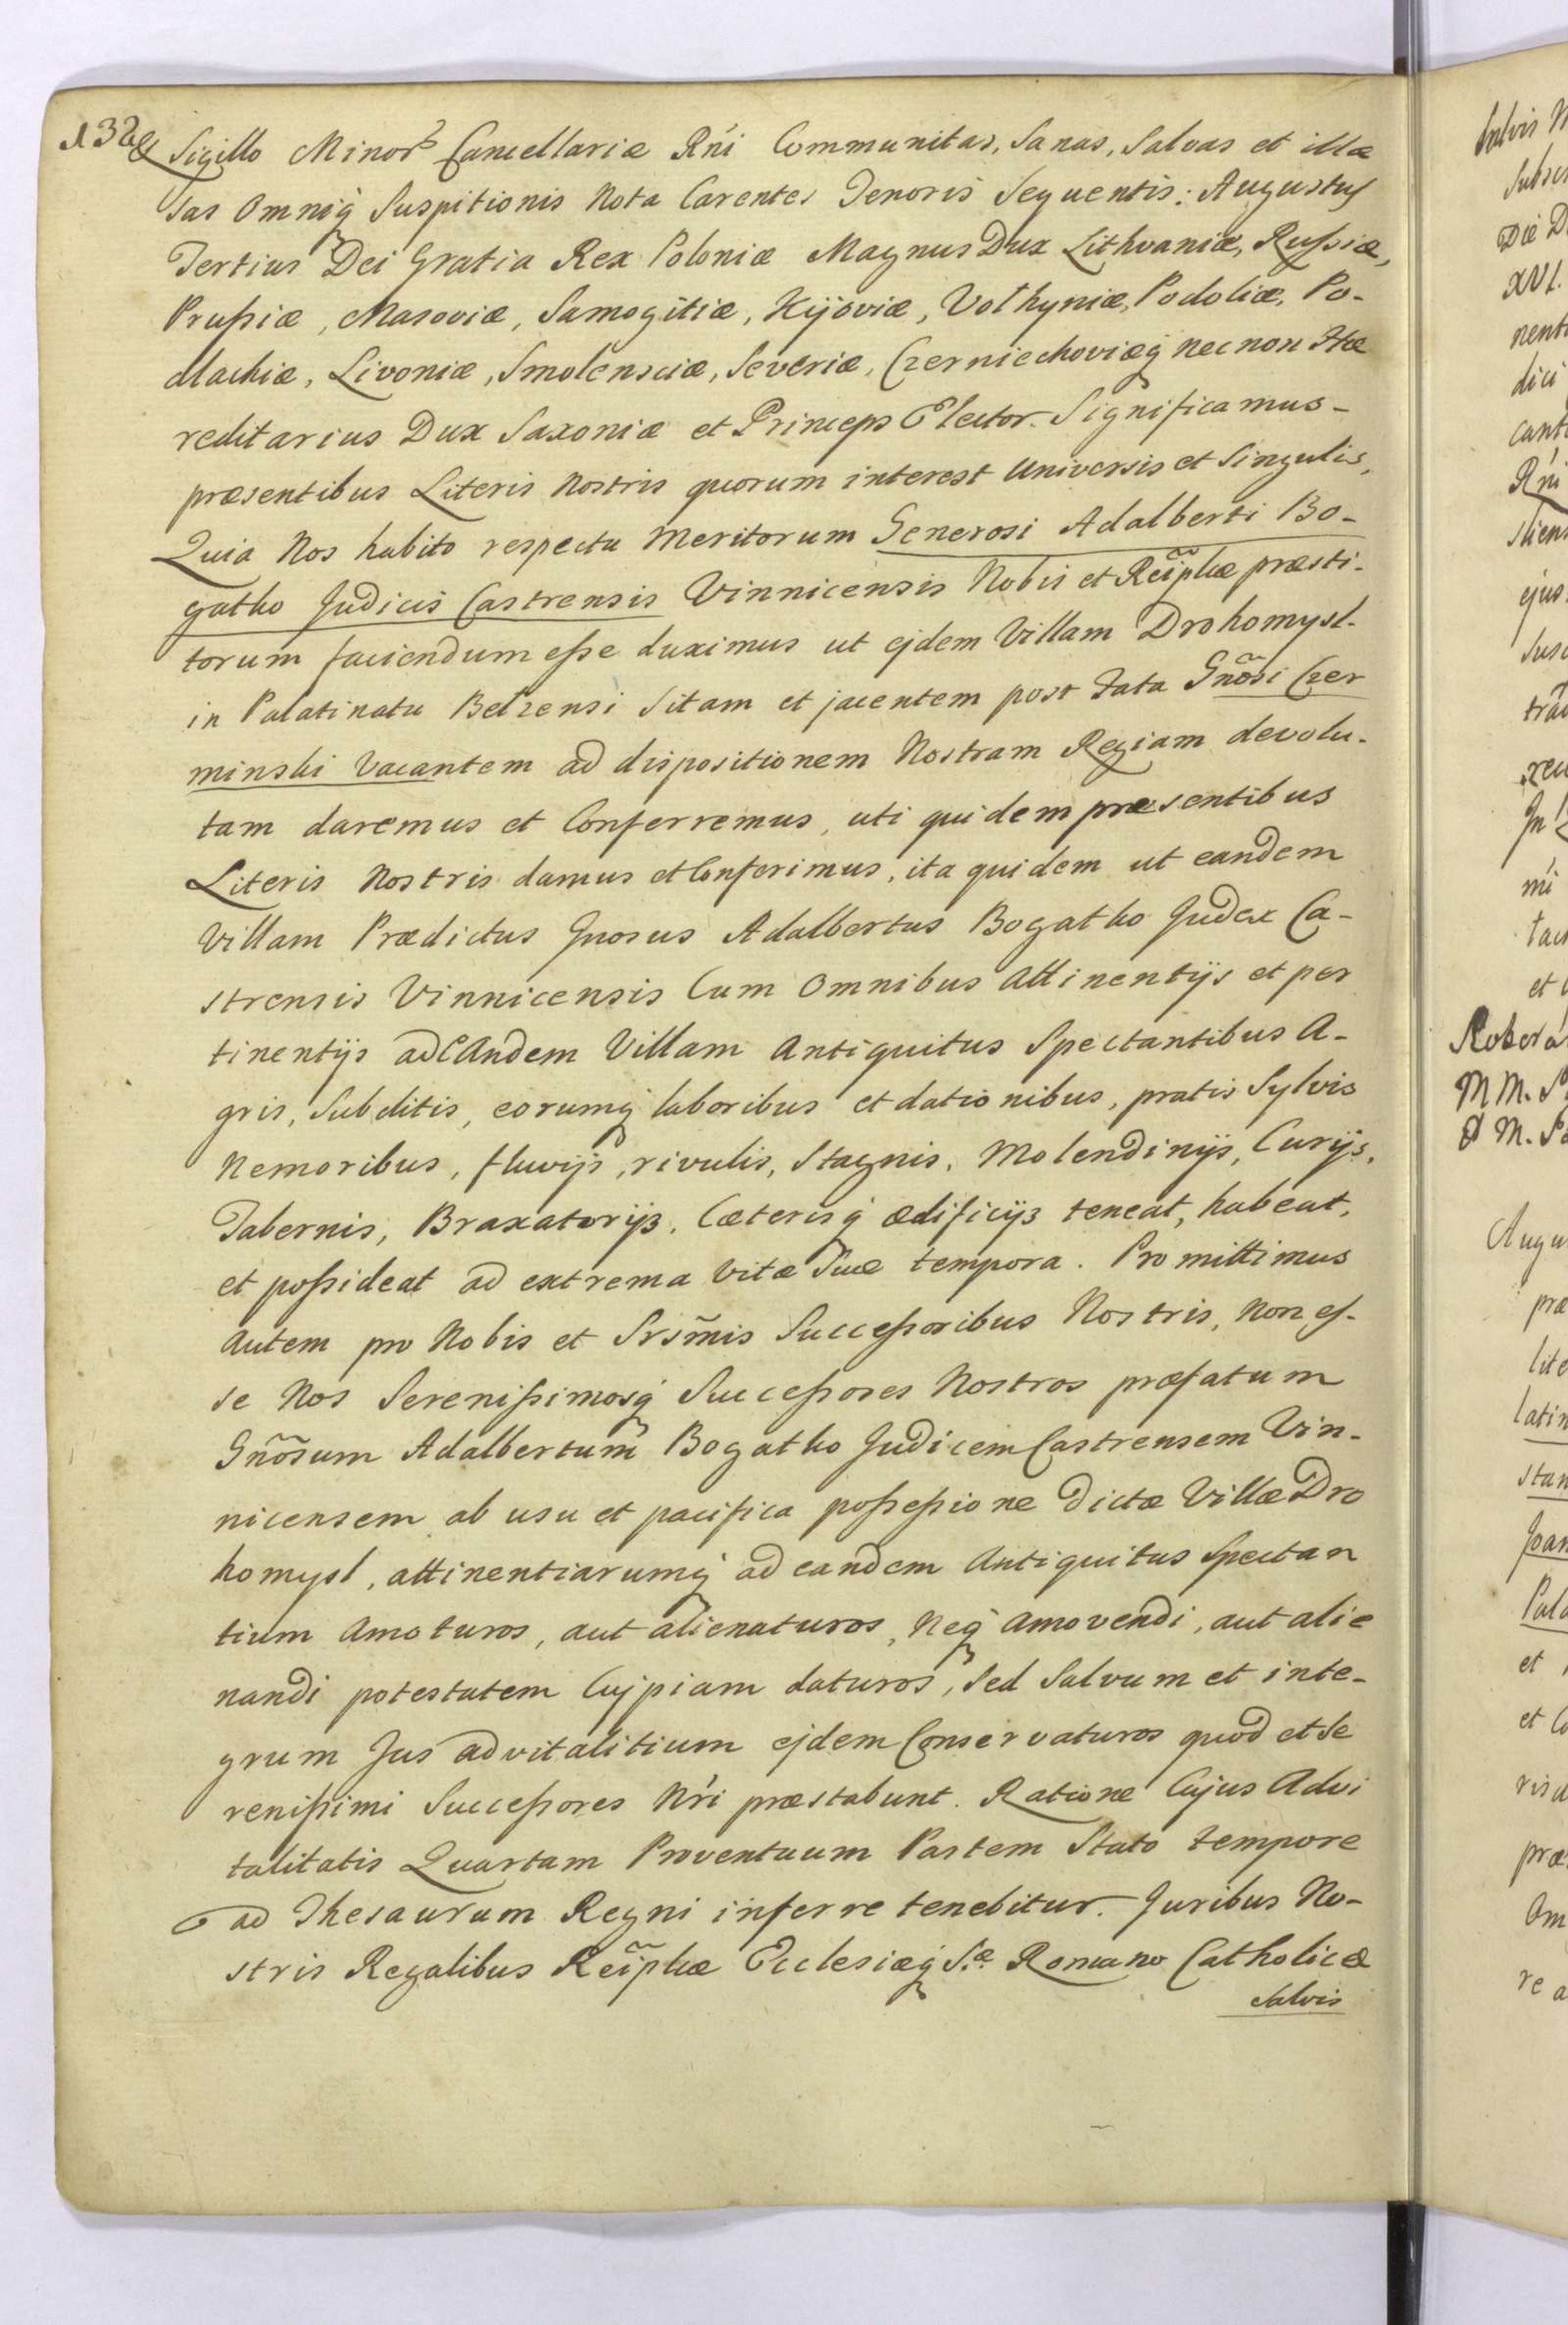 132
Sigillo Minoris Cancellariæ Rńi Communitas, Sanas, Salvas et illæ
sas Omniq́ Suspitionis Nota Carentes Tenoris Sequentis: Augustus
Tertius Dei Gratia Rex Poloniæ Magnus Dux Lithvaniæ, Rußiæ,
Prußiæ, Masoviæ, Samogitiæ, Kijoviæ, Volhyniæ, Podoliæ, Po-
dlachiæ, Livoniæ, Smolensciæ, Severiæ, Czerniechoviæq́ nec non Hæ
reditarius Dux Saxoniæ et Princeps Elector. Significamus -
præsentibus Literis Nostris quorum interest Universis et Singulis,
Quia Nos habito respectu Meritorum Generosi Adalberti Bo-
gatko Judicis Castrensis Vinnicensis Nobis et Reip̃licæ præsti-
torum faciendum eße duximus ut ejdem Villam Drohomysl-
in Palatinatu Belzensi Sitam et jacentem post Fata Gñosi Czer
minski Vacantem ad dispositionem Nostram Regiam devolu-
tam daremus et Conferremus, uti quidem præsentibus
Literis Nostris damus et Conferimus, ita quidem ut eandem
Villam Prædictus Gnosus Adalbertus Bogatko Judex Ca-
strensis Vinnicensis Cum Omnibus Attinentijs et per
tinentijs ad eandem Villam Antiquitus Spectantibus A-
gris, Subditis, eorumq́ laboribus et dationibus, pratis Sylvis
Nemoribus, fluvijs, rivulis, Stagnis, Molendinijs, Curijs,
Tabernis, Braxatorijs, Cæterisq́ ædificijs teneat, habeat,
et poßideat ad extrema Vitæ Suæ tempora. Promittimus
Autem pro Nobis et Srsm̃is Succeßoribus Nostris, Non eß-
se Nos Serenißimosq́ Succeßores Nostros præfatum
Gñosum Adalbertum Bogatko Judicem Castrensem Vin-
nicensem ab usu et pacifica poßeßione Dictæ Villæ Dro
homysl, attinentiarumq́ ad eandem Antiquitus Spectan
tium Amoturos, aut alienaturos, Neq́ Amovendi, aut alie
nandi potestatem Cujpiam daturos, Sed Salvum et inte-
grum Jus advitalitium ejdem Conservaturos quod et Se
renißimi Succeßores Nŕi præstabunt. Ratione Cujus Advi
talitatis Quartam Proventuum Partem Stato tempore
ad Thesaurum Regni inferre tenebitur. Juribus No-
stris Regalibus Reip̃licæ Ecclesiæq́ S.æ Romano Catholicæ
Salvis